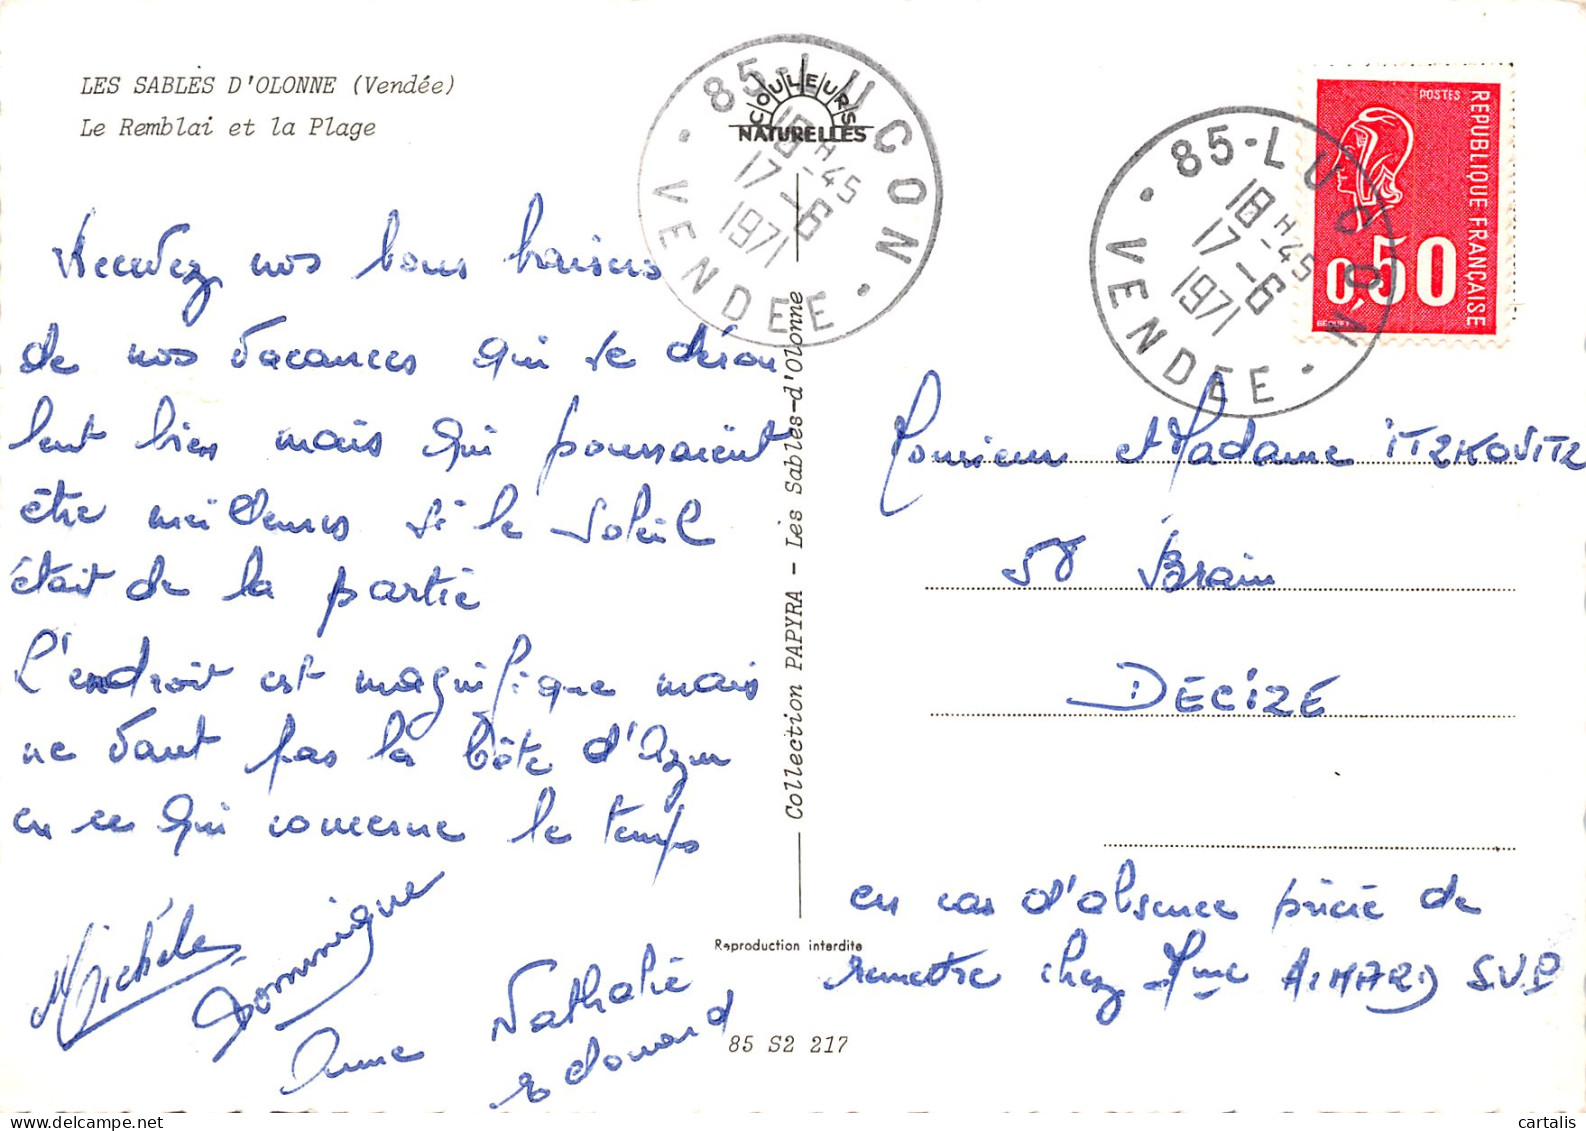 LES SABLES D'OLONNE (Vendée)
Le Remblai et la Plage
Recevez nos bons baisers
de nos vacances qui se dérou
lent bien mais qui pourraient
être meilleures si le soleil
était de la partie
L'endroit est magnifique mais
ne vaut pas la Côte d'Azur
en ce qui concerne le temps
Michèle
Dominique
Anne
Nathalie
Edouard
COULEURS
NATURELLES
85-LUÇON
18H45
17-6
1971
VENDEE
Collection PAPYRA - Les Sables-d'Olonne
Reproduction interdite
85 S2 217
85-LUÇON
18H45
17-6
1971
VENDEE
POSTES
REPUBLIQUE FRANÇAISE
0,50
BEQUET
Monsieur et Madame ITZKOVITZ
58 Brain
DECIZE
en cas d'absence prière de
remettre chez Mme AIMARD S.V.P
cartalis